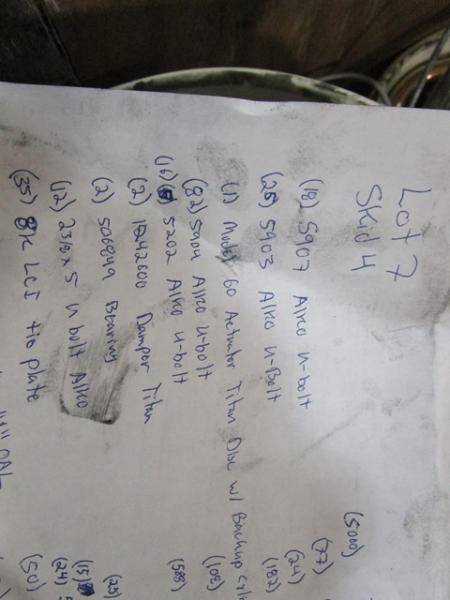 Lot 7
Skid 4
(18) 5907 Alko u-bolt
(25) 5903 Alko u-Bolt
(1) Model 60 Actuator Titan Disc w/ Backup
(82) 5204 Alko u-bolt
(16) 5202 Alko u-bolt
(2) 1242600 Damper Titan
(2) 506849 Bearing
(12) 2 3/8 x 5 u bolt Alko
(35) 8k LCI tie plate
(5000)
(77)
(24)
(182)
(108)
(588)
(25)
(15)
(24)
(50)